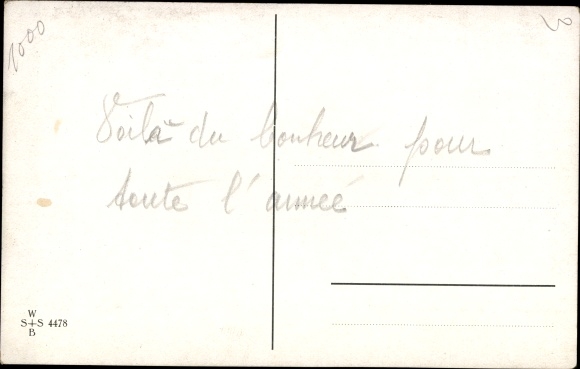 1000
3
Voilà du bonheur pour
toute l'anneé
W
S+S 4478
B